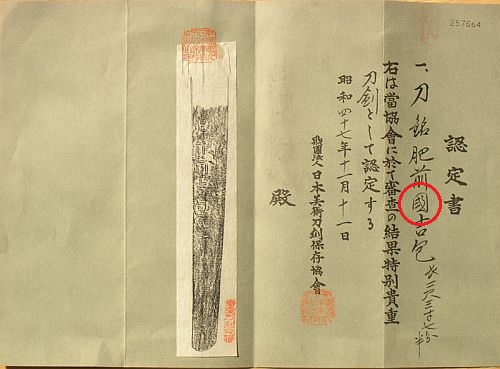 257664
認定書
一、刀 銘 肥前國吉包 長二尺三寸七分半
右は當協會に於て審査の結果特別貴重
刀剣として認定する
昭和四十七年十一月十一日
財團法人日本美術刀剣保存協會
殿